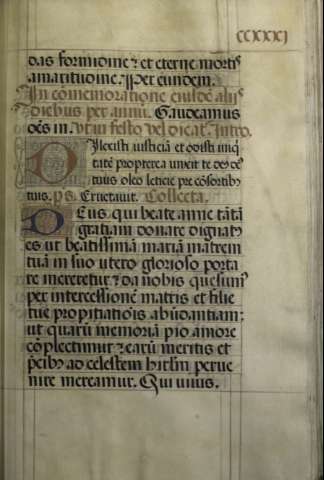 CCXXXI
das formidine ⁊ et eterne mortis
amaritudine. Per eundem.
In cōmemoratione eiusdē aliis
diebus per annū. Gaudeamus
oēs in. Vt in festo vel dicat̄. Intro.
Dilexisti iusticiā et odisti iniq̄
tatē propterea unxit te deꝰ deꝰ
tuus oleo leticie pre cōsortibꝰ
tuis. ps. Eructauit. Collecta.
Deus qui beate anne tātā
gratiam donare dignatꝰ
es ut beatissimā mariā matrem
tuā in suo utero glorioso porta
re mereretur ⁊ da nobis quesumꝰ
per intercessionē matris et filie
tue propitiatiōis abūdantiam:
ut quarū memoriā pio amore
cōplectimur ⁊ earū meritis et
p̄cibꝰ ad celestem hirl̄m perue
nire mereamur. Qui uiuis.